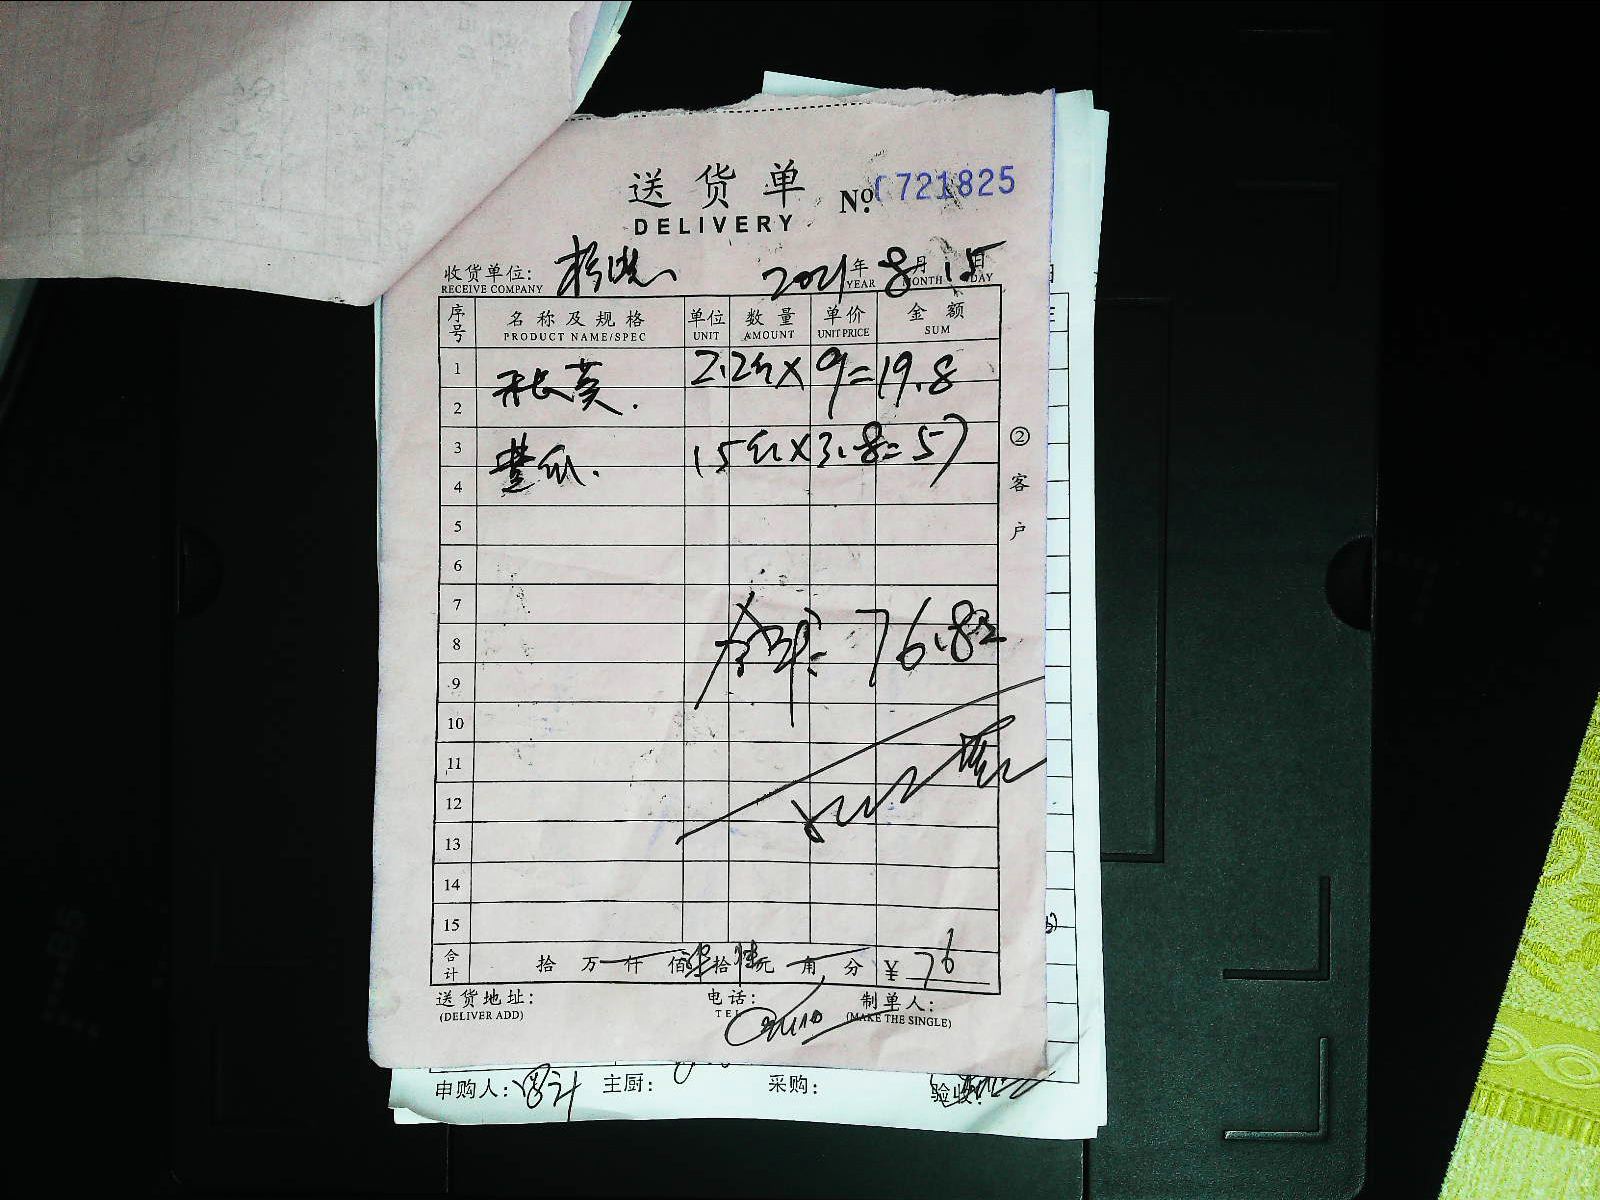 送货单
DELIVERY
№ 721825
收货单位:
RECEIVE COMPANY
2021年 8月 15日
YEAR MONTH DAY
序号 名称及规格 单位 数量 单价 金额
PRODUCT NAME/SPEC UNIT AMOUNT UNIT PRICE SUM
1 2.2斤×9=19.8
2
3 15斤×3.8=57
4
5
6
7
8 76.8元
9
10
11
12
13
14
15
② 客户
合计 拾 万 仟 佰 柒拾 陆元 角 分 ¥ 76
送货地址: 电话: 制单人:
(DELIVER ADD) TEL (MAKE THE SINGLE)
申购人: 主厨: 采购: 验收: